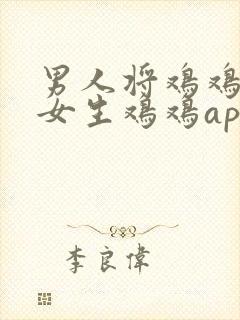 男人将鸡鸡
女生鸡鸡ap
李良偉